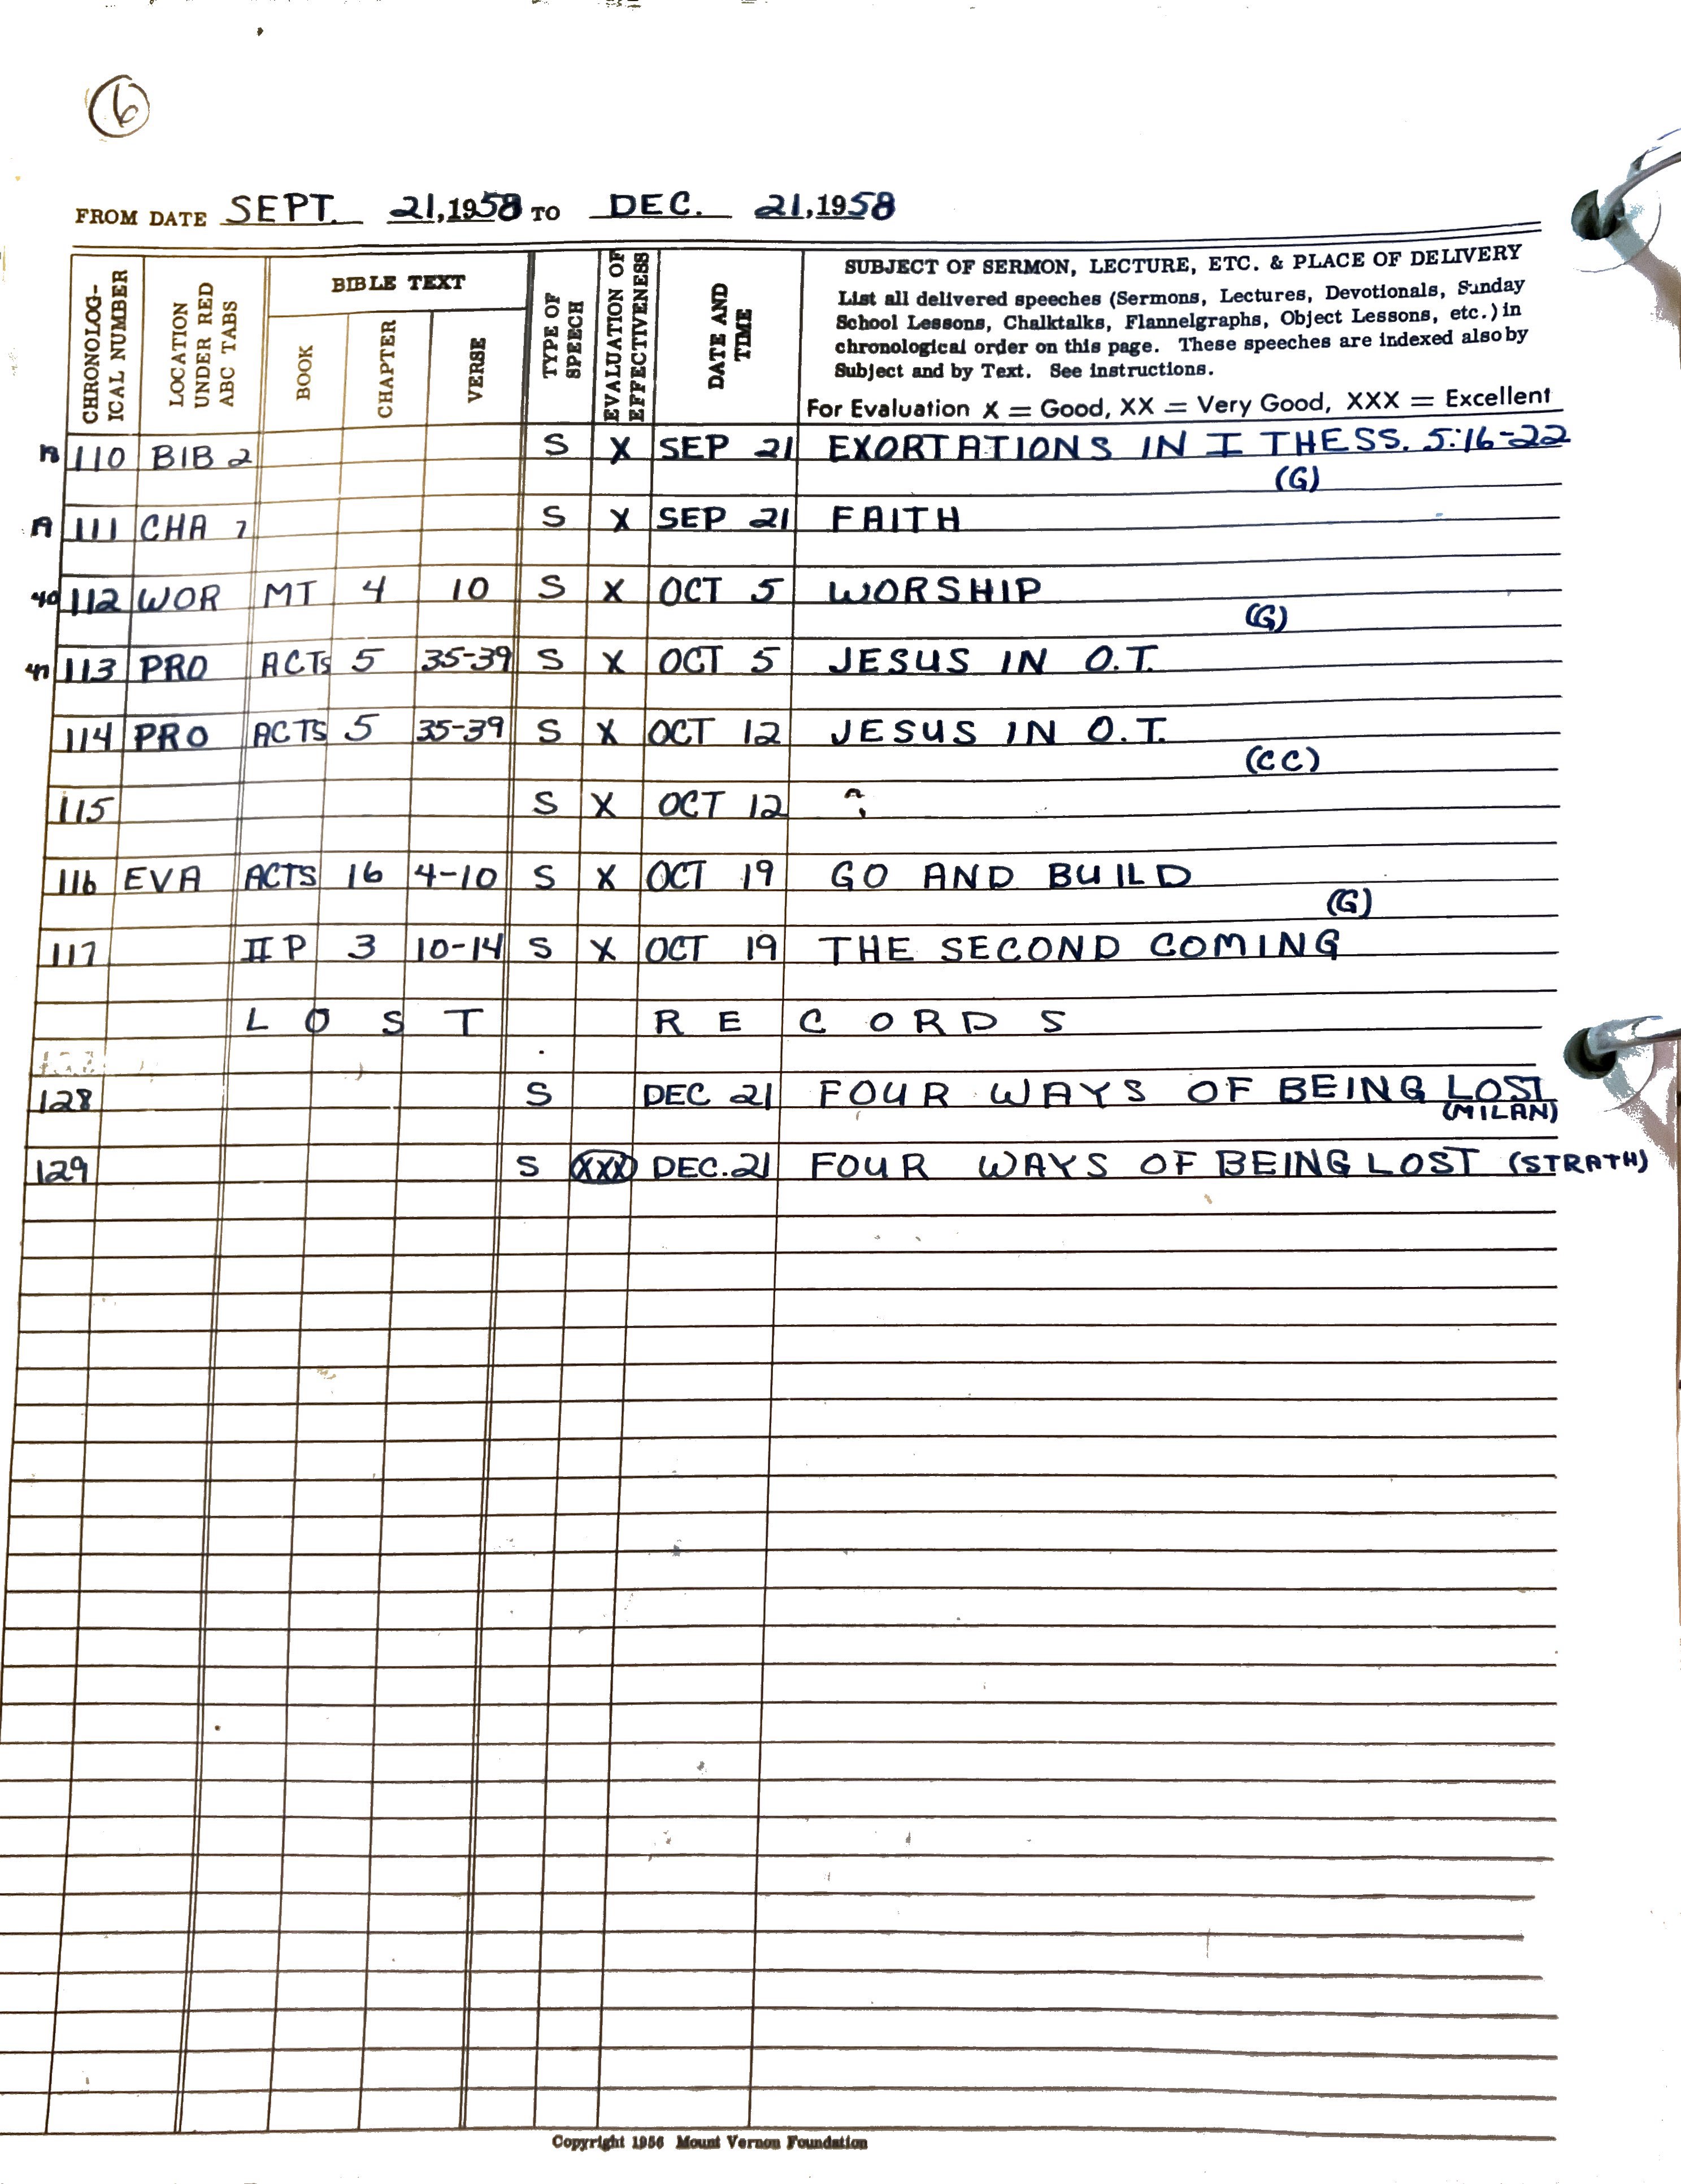 6
FROM DATE SEPT. 21, 1958 TO DEC. 21, 1958
CHRONOLOG-
ICAL NUMBER
LOCATION
UNDER RED
ABC TABS
BIBLE TEXT
BOOK
CHAPTER
VERSE
TYPE OF
SPEECH
EVALUATION OF
EFFECTIVENESS
DATE AND
TIME
SUBJECT OF SERMON, LECTURE, ETC. & PLACE OF DELIVERY
List all delivered speeches (Sermons, Lectures, Devotionals, Sunday
School Lessons, Chalktalks, Flannelgraphs, Object Lessons, etc.) in
chronological order on this page. These speeches are indexed also by
Subject and by Text. See instructions.
For Evaluation X = Good, XX = Very Good, XXX = Excellent
110 BIB 2 S X SEP 21 EXORTATIONS IN I THESS. 5:16-22
(G)
A 111 CHA 7 S X SEP 21 FAITH
40 112 WOR MT 4 10 S X OCT 5 WORSHIP
(G)
113 PRO ACTS 5 35-39 S X OCT 5 JESUS IN O.T.
114 PRO ACTS 5 35-39 S X OCT 12 JESUS IN O.T.
(CC)
115 S X OCT 12 ?
116 EVA ACTS 16 4-10 S X OCT 19 GO AND BUILD
(G)
117 II P 3 10-14 S X OCT 19 THE SECOND COMING
LOST RECORDS
128 S DEC 21 FOUR WAYS OF BEING LOST
(MILAN)
129 S XXX DEC. 21 FOUR WAYS OF BEING LOST (STRATH)
Copyright 1956 Mount Vernon Foundation